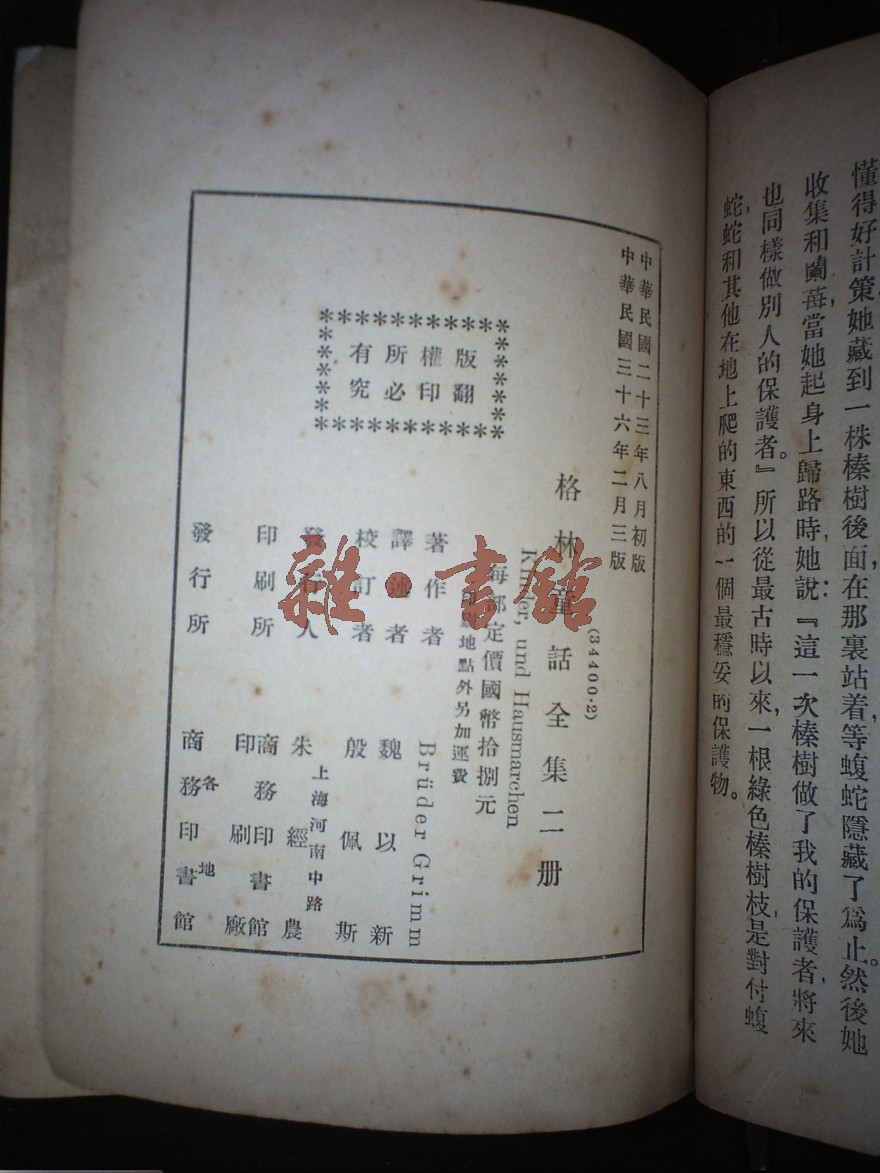 懂得好計策,她藏到一株榛樹後面,在那裏站着,等蝮蛇隱藏了爲止。然後她
收集和蘭莓,當她起身上歸路時,她說:『這一次榛樹做了我的保護者,將來
也同樣做別人的保護者。』所以從最古時以來,一根綠色榛樹枝,是對付蝮
蛇,蛇和其他在地上爬的東西的一個最穩妥的保護物。
中華民國二十三年八月初版
中華民國三十六年二月三版
(34400·2)
格林童話全集二册
Kinder, und Hausmarchen
每部定價國幣拾捌元
地點外另加運費
版權所有
翻印必究
著作者 Brüder Grimm
譯述者 魏以新
校訂者 殷佩斯
發行人 朱經農
上海河南中路
印刷所 商務印書館
印刷廠
發行所 各地
商務印書館
雜·書館